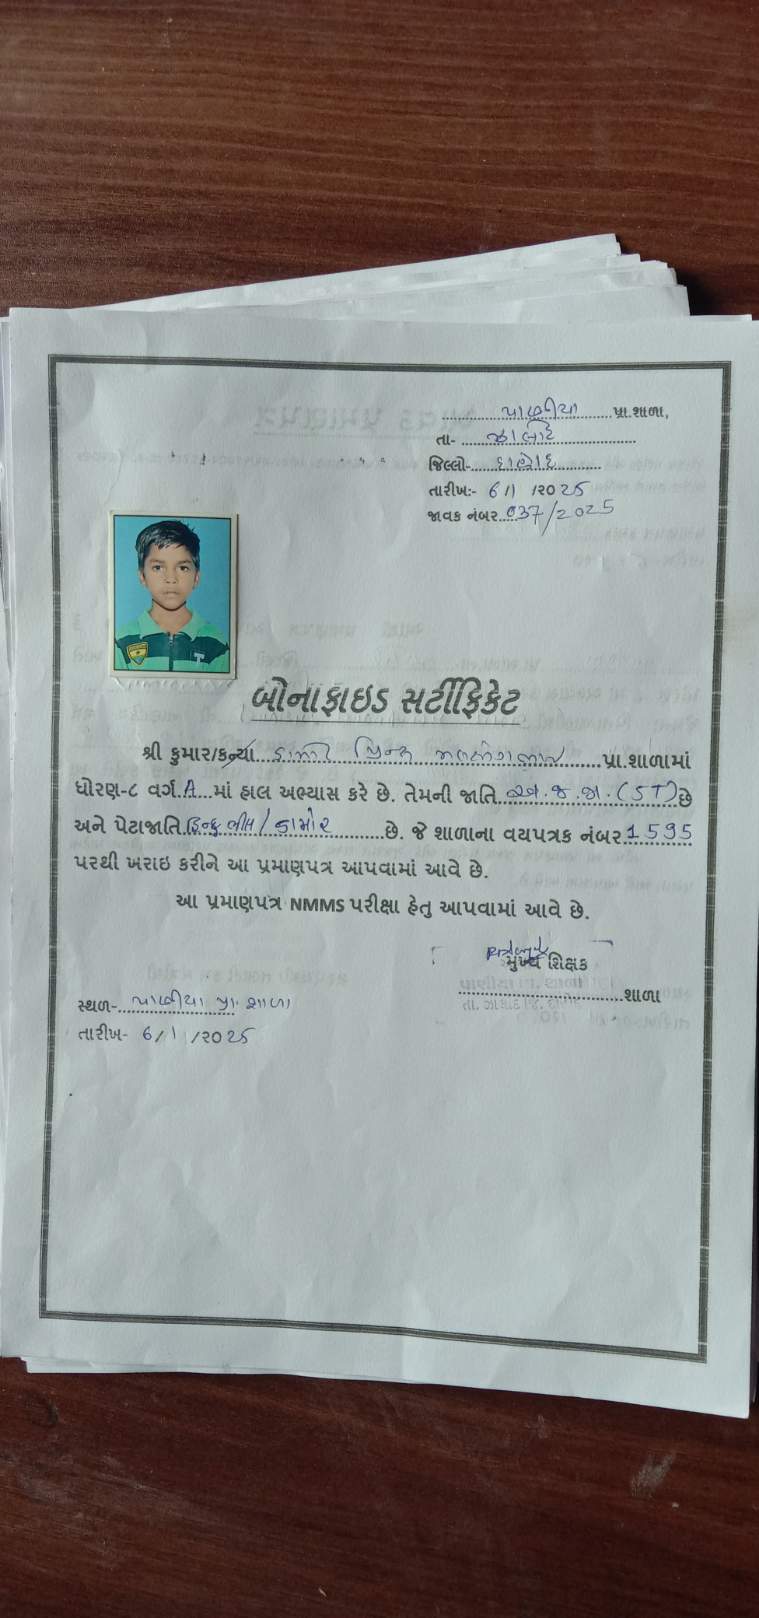 પાળીયા પ્રા.શાળા,
તા- ઝાલોદ
જિલ્લો- દાહોદ
તારીખ:- 6/1/2025
જાવક નંબર 037/2025
બોનાફાઇડ સર્ટીફિકેટ
શ્રી કુમાર/કન્યા ડામોર પ્રિન્સ પ્રા.શાળામાં
ધોરણ-૮ વર્ગ.A માં હાલ અભ્યાસ કરે છે. તેમની જાતિ અનુ.જ.જા.(ST) છે
અને પેટાજાતિ હિન્દુ ભીલ/ડામોર છે. જે શાળાના વયપત્રક નંબર 1595
પરથી ખરાઇ કરીને આ પ્રમાણપત્ર આપવામાં આવે છે.
આ પ્રમાણપત્ર NMMS પરીક્ષા હેતુ આપવામાં આવે છે.
મુખ્ય શિક્ષક
શાળા
સ્થળ- પાળીયા પ્રા. શાળા
તારીખ- 6/1/2025